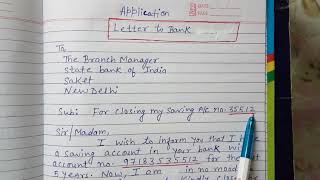 Application
Letter to Bank
To
The Branch Manager
state bank of India
Saket
New Delhi
Sub: For closing my saving A/c no. 35512
Sir/Madam,
I wish to inform you that I
a saving account in your bank with
account no. 97183535512 for the
5 years. Now, I am in no mood
Kindly close